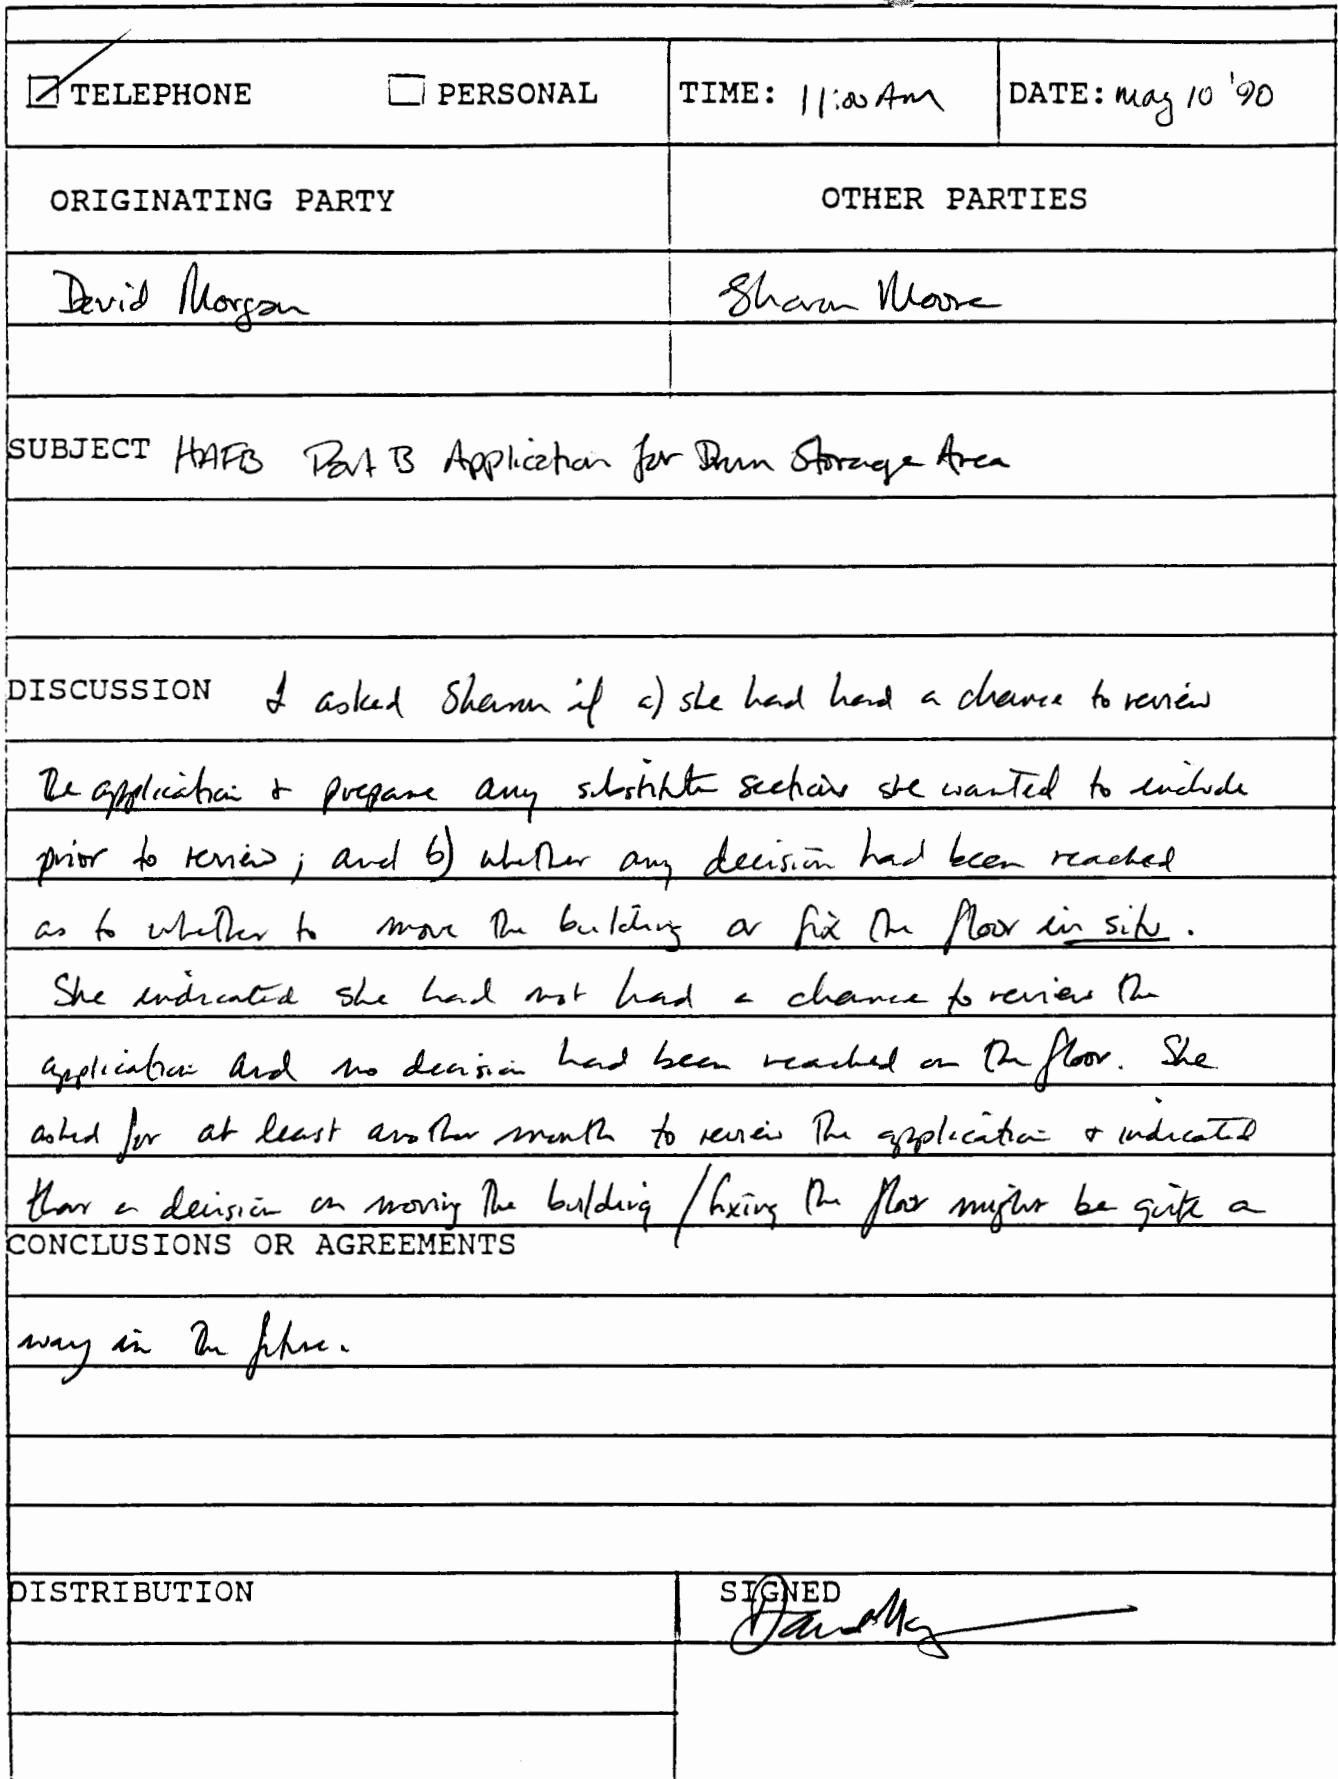 TELEPHONE PERSONAL TIME: 11:00 Am DATE: May 10 '90
ORIGINATING PARTY OTHER PARTIES
David Morgan Sharon Moore
SUBJECT HAFB Part B Application for Drum Storage Area
DISCUSSION I asked Sharon if a) she had had a chance to review
the application & prepare any substitute sections she wanted to include
prior to review; and b) whether any decision had been reached
as to whether to move the building or fix the floor in situ.
She indicated she had not had a chance to review the
application and no decision had been reached on the floor. She
asked for at least another month to review the application & indicated
that a decision on moving the building / fixing the floor might be quite a
CONCLUSIONS OR AGREEMENTS
way in the future.
DISTRIBUTION SIGNED